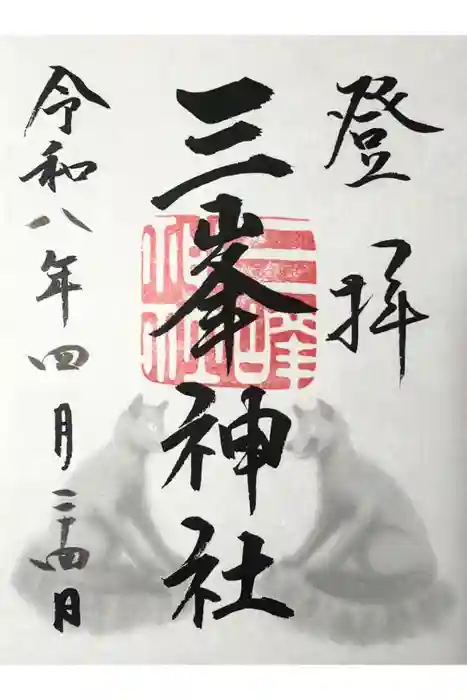 登拝
三峯神社
令和八年四月二十四日